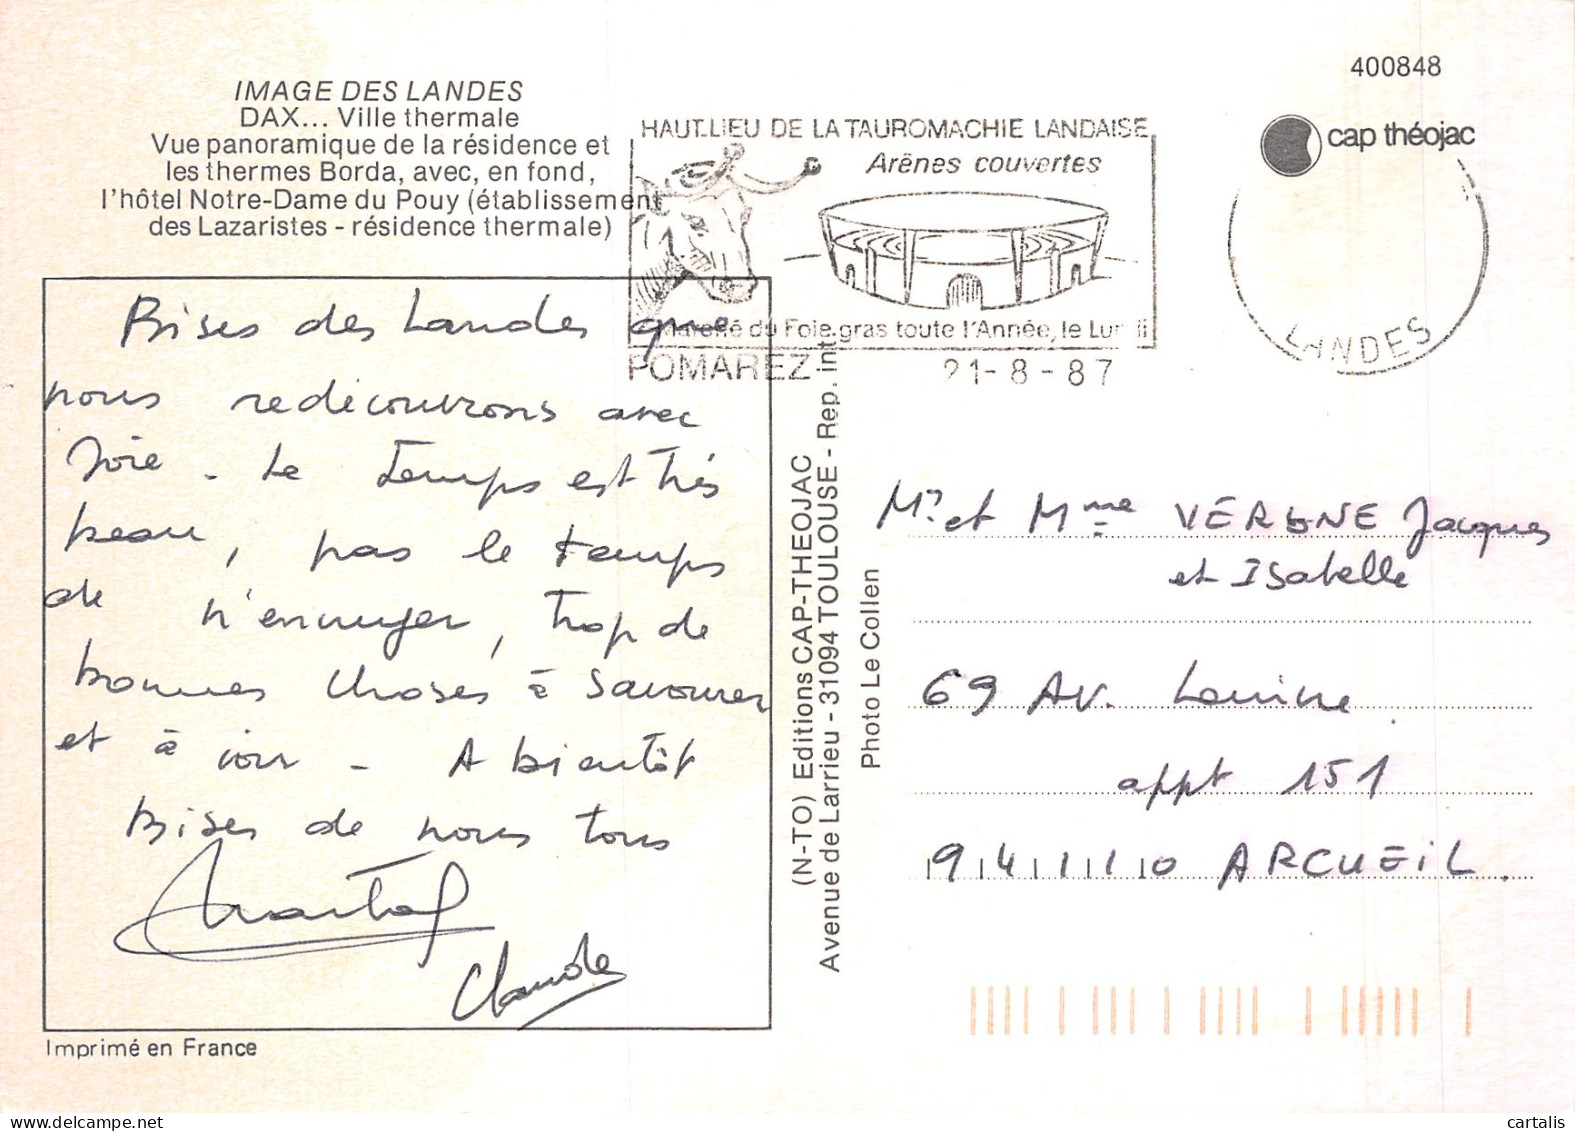 400848
cap théojac
IMAGE DES LANDES
DAX... Ville thermale
Vue panoramique de la résidence et
les thermes Borda, avec, en fond,
l'hôtel Notre-Dame du Pouy (établissement
des Lazaristes - résidence thermale)
HAUT LIEU DE LA TAUROMACHIE LANDAISE
Arènes couvertes
Marché du Foie gras toute l'Année, le Lundi
POMAREZ 21-8-87
LANDES
Bises des Landes que
nous redécouvrons avec
joie - Le temps est très
beau, pas le temps
de n'ennuyer, trop de
bonnes choses à savourer
et à voir - A bientôt
Bises de nous tous
Chantal
Claude
Imprimé en France
(N-TO) Editions CAP-THEOJAC
Avenue de Larrieu - 31094 TOULOUSE - Rep. int.
Photo Le Collen
Mr et Mme VERGNE Jacques
et Isabelle
69 Av.
appt 151
94110 ARCUEIL.
cartalis